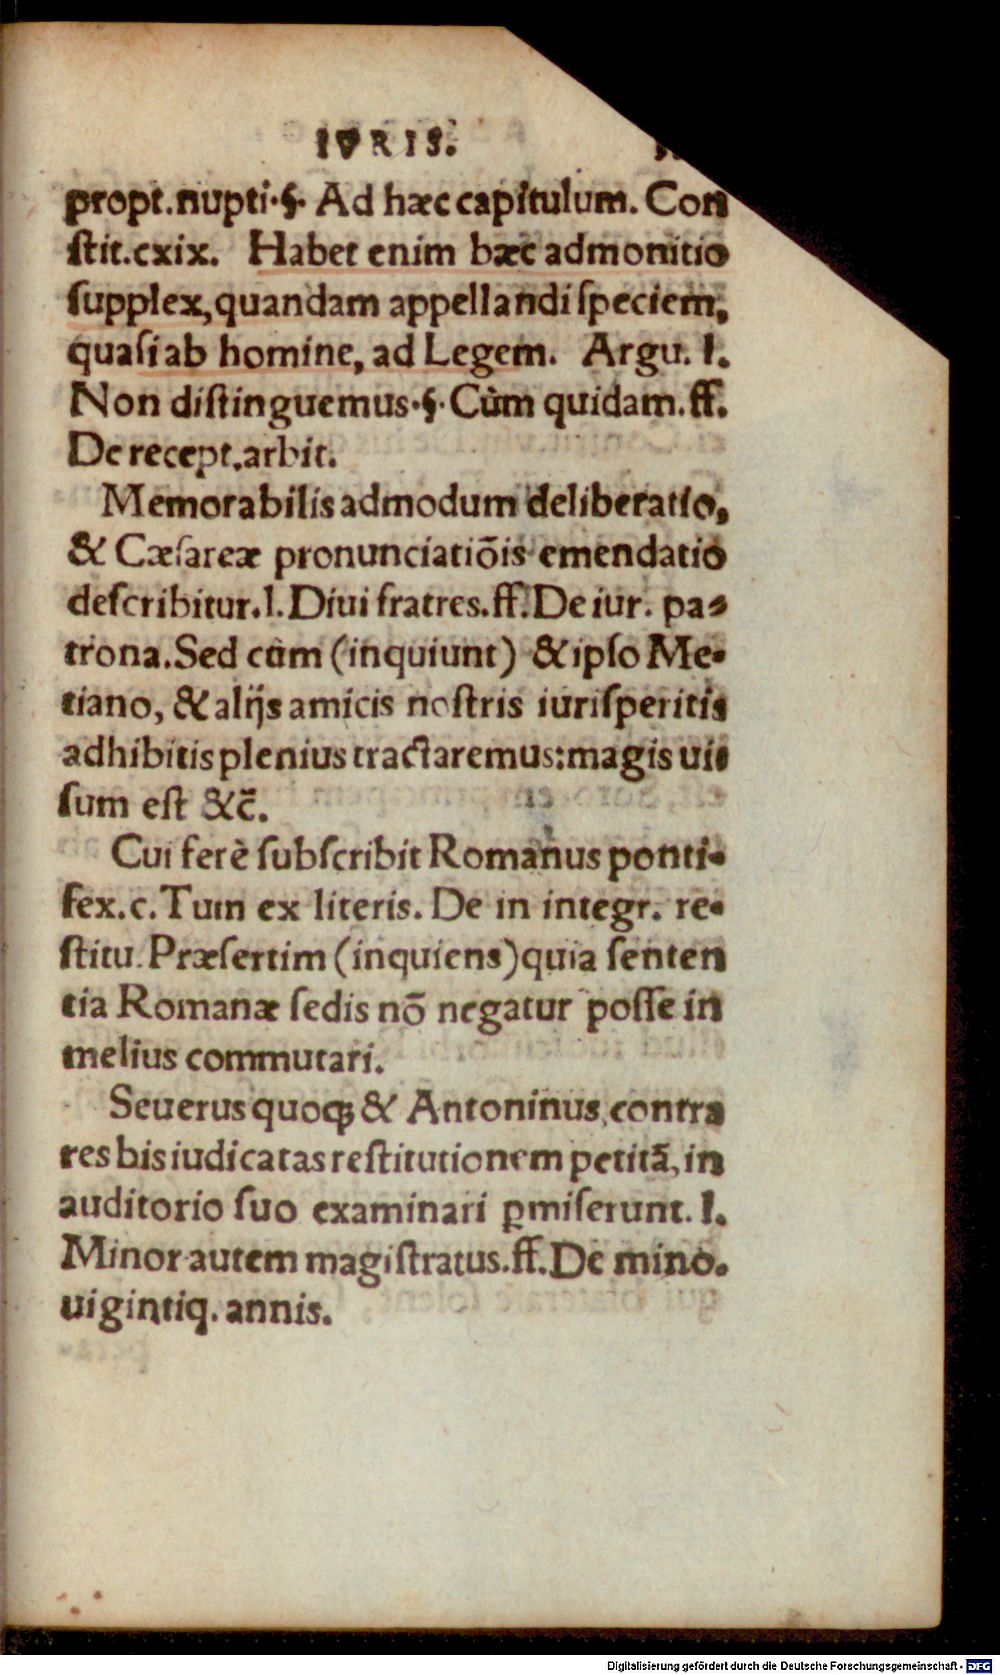 IVRIS.
propt.nupti.§. Ad hæc capitulum. Con
ſtit.cxix. Habet enim hæc admonitio
ſupplex,quandam appellandi ſpeciem,
quaſi ab homine, ad Legem. Argu. l.
Non diſtinguemus.§. Cùm quidam.ff.
De recept.arbit.
Memorabilis admodum deliberatio,
& Cæſareæ pronunciatiõis emendatio
deſcribitur.l.Diui fratres.ff.De iur. pa-
trona.Sed cùm (inquiunt) & ipſo Me-
tiano, & alijs amicis noſtris iuriſperitis
adhibitis plenius tractaremus:magis ui-
ſum eſt &c̃.
Cui ferè ſubſcribit Romanus ponti-
fex.c.Tum ex literis. De in integr. re-
ſtitu. Præſertim (inquiens)quia ſenten
tia Romanæ ſedis nõ negatur poſſe in
melius commutari.
Seuerus quoq; & Antoninus,contra
res bis iudicatas reſtitutionem petitã, in
auditorio ſuo examinari ꝑmiſerunt. l.
Minor autem magiſtratus.ff.De mino.
uigintiq. annis.
Digitalisierung gefördert durch die Deutsche Forschungsgemeinschaft - DFG